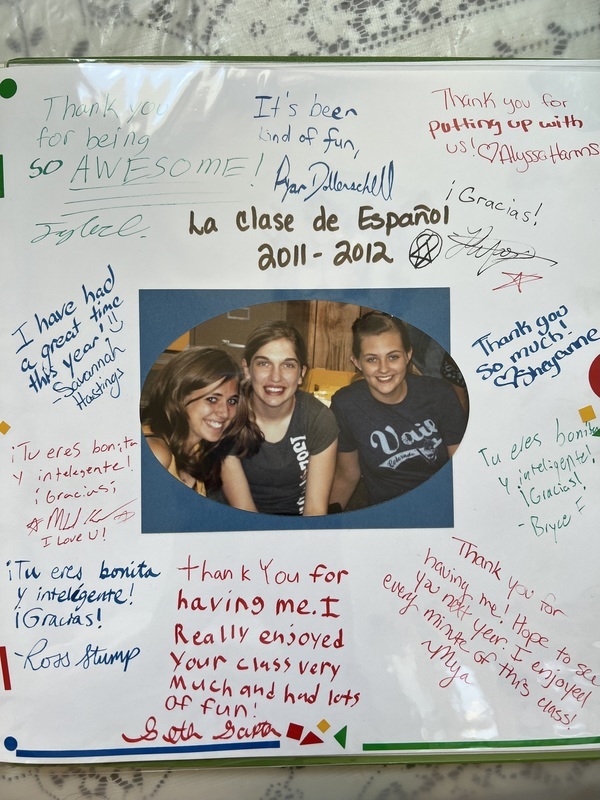 Thank you
for being
so AWESOME!
It's been
kind of fun,
Ryan Dollerschell
Thank you for
putting up with
us! ♡Alyssa Harms
¡Gracias!
La clase de Español
2011-2012
I have had
a great time
this year!
-Savannah
Hastings
Thank you
so much!
♡Sheyanne
Vail
¡Tu eres bonita
y intelegente!
¡Gracias¡
I love U!
Tu eres bonita
y inteligente!
¡Gracias!
- Bryce F
¡Tu eres bonita
y inteligente!
¡Gracias!
-Ross Stump
Thank You for
having me. I
Really enjoyed
Your class very
Much and had lots
of fun!
Seth
Thank you for
having me! Hope to see
you next year. I enjoyed
every minute of this class!
~Mya